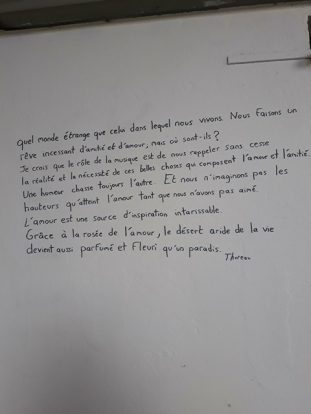 Quel monde étrange que celui dans lequel nous vivons. Nous faisons un
rêve incessant d'amitié et d'amour, mais où sont-ils?
Je crois que le rôle de la musique est de nous rappeler sans cesse
la réalité et la nécessité de ces belles choses qui composent l'amour et l'amitié.
Une humeur chasse toujours l'autre. Et nous n'imaginons pas les
hauteurs qu'atteint l'amour tant que nous n'avons pas aimé.
L'amour est une source d'inspiration intarissable.
Grâce à la rosée de l'amour, le désert aride de la vie
devient aussi parfumé et fleuri qu'un paradis.
Thoreau